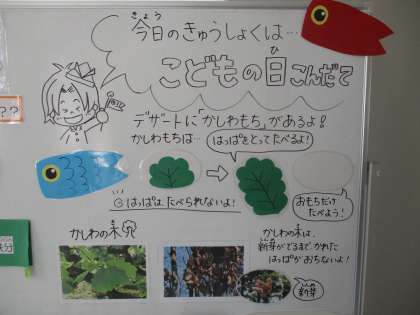 今日のきゅうしょくは…
きょう
こどもの日こんだて
ひ
??
デザートに「かしわもち」があるよ!
かしわもちは…
はっぱをとってたべるよ!
はっぱは、たべられないよ!
おもちだけ
たべよう!
かしわの木
き
かしわの木は、
き
新芽がでるまで、かれた
しんめ
はっぱがおちないよ!
新芽
しんめ
鉄分